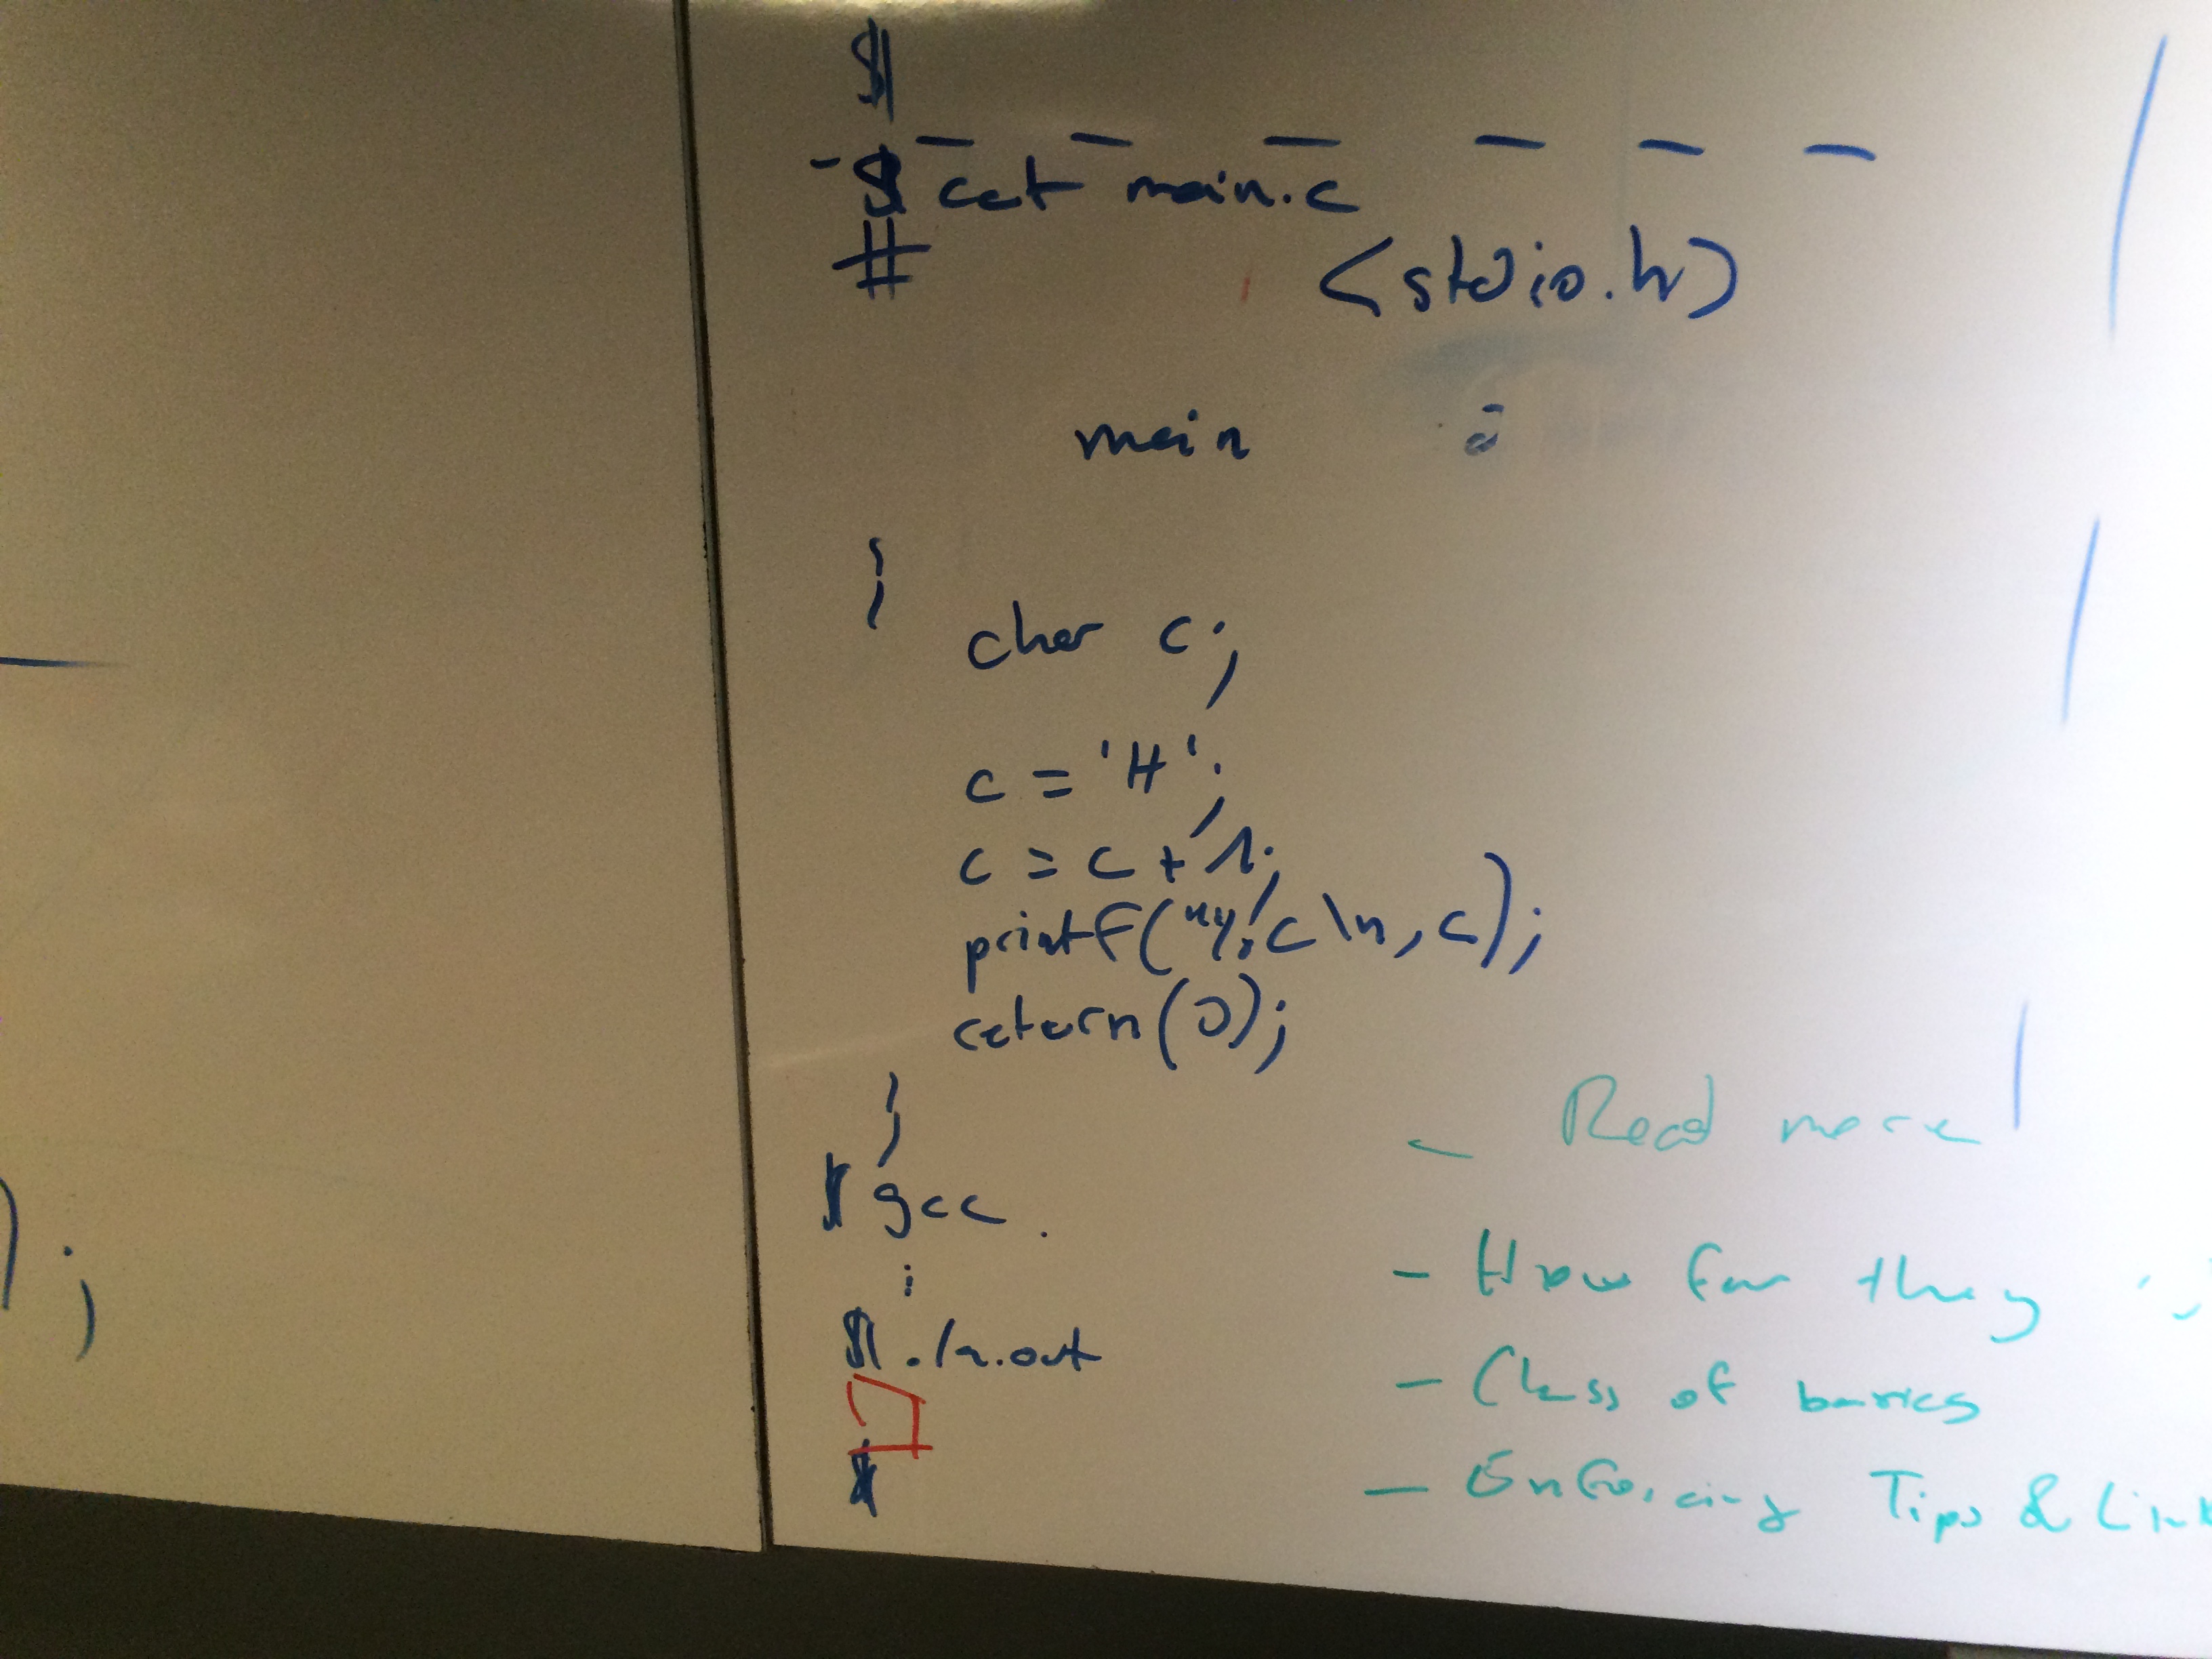 $
$ cat main.c
# <stdio.h>
main
{
char c;
c = 'H';
c = c + 1;
printf("%c\n, c);
return(0);
}
$ gcc .
:
$ ./a.out
$
);
- Read more
- How far they
- Class of basics
- Enforcing Tips & Link